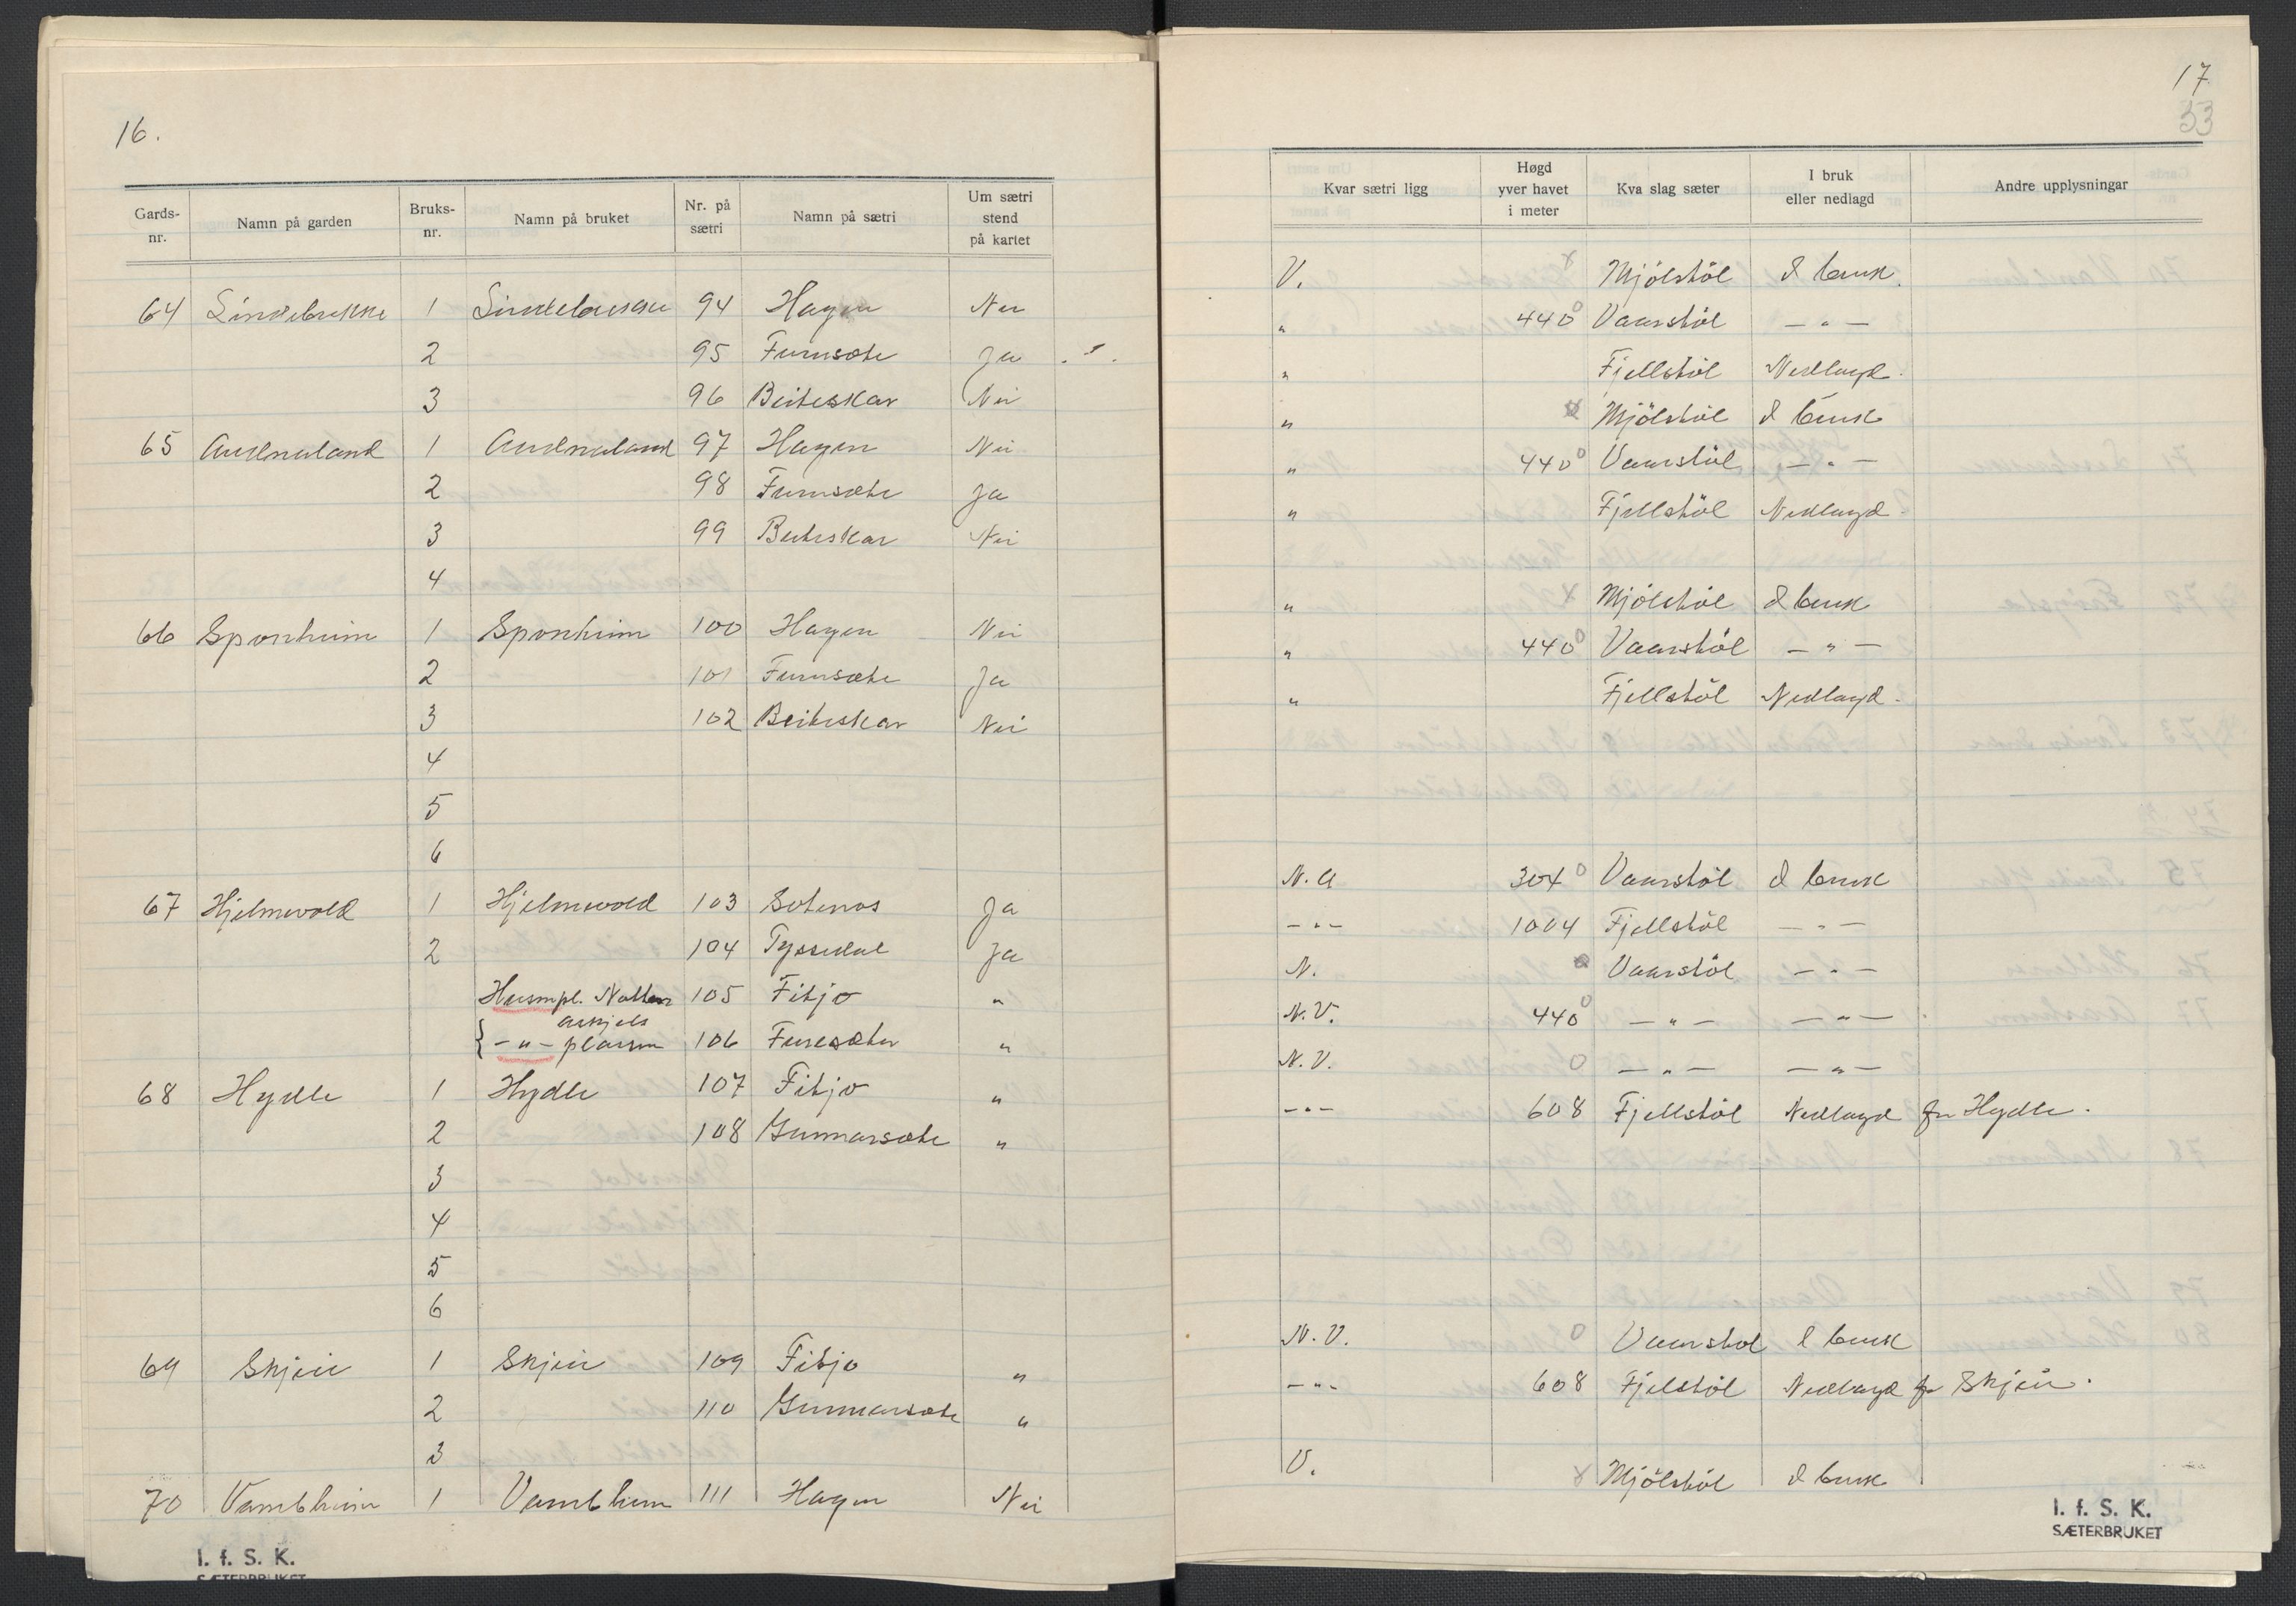 16.
Gards-nr. Namn på garden Bruks-nr. Namn på bruket Nr. på sætri Namn på sætri Um sætri stend på kartet
64 Lindebrekke 1 Lindebrekke 94 Hagen Nei
2 " 95 Furusæte Ja
3 " 96 Beiteskar Nei
65 Audnaland 1 Audnaland 97 Hagen Nei
2 98 Furusæte Ja
3 99 Beiteskar Nei
4
66 Sponheim 1 Sponheim 100 Hagen Nei
2 " 101 Furusæte Ja
3 102 Beiteskar Nei
4
5
6
67 Hjelmevold 1 Hjelmevold 103 Sotenos Ja
2 104 Tyssedal Ja
Husmpl. Natten 105 Fitjo "
askjels
{ -"- plassen 106 Furesæter "
68 Hydle 1 Hydle 107 Fitjo "
2 108 Gunnarsæte "
3
4
5
6
69 Skjeie 1 Skjeie 109 Fitjo "
2 110 Gunnarsæte "
3
70 Vambheim 1 Vambheim 111 Hagen Nei
I. f. S. K.
SÆTERBRUKET
17
33
Kvar sætri ligg Høgd yver havet i meter Kva slag sæter I bruk eller nedlagd Andre upplysningar
V. x Mjölstöl I bruk.
" 440 0 Vaarstöl — " —
" Fjellstöl Nedlagd.
" x Mjölstöl I bruk
" 440 0 Vaarstöl — " —
" Fjellstöl Nedlagd.
" x Mjölstöl I bruk
" 440 0 Vaarstöl — " —
" Fjellstöl Nedlagd.
N. A 304 0 Vaarstöl I bruk
-"- 1004 Fjellstöl — " —
N. 0 Vaarstöl — " —
N.V. 440 0 — " — — " —
N.V. 0 — " — — " —
-"- 608 Fjellstöl Nedlagd for Hydle.
N.V. 0 Vaarstol I bruk
-"- 608 Fjelstöl Nedlagd for Skjeie.
V. x Mjölstöl I bruk
I. f. S. K.
SÆTERBRUKET